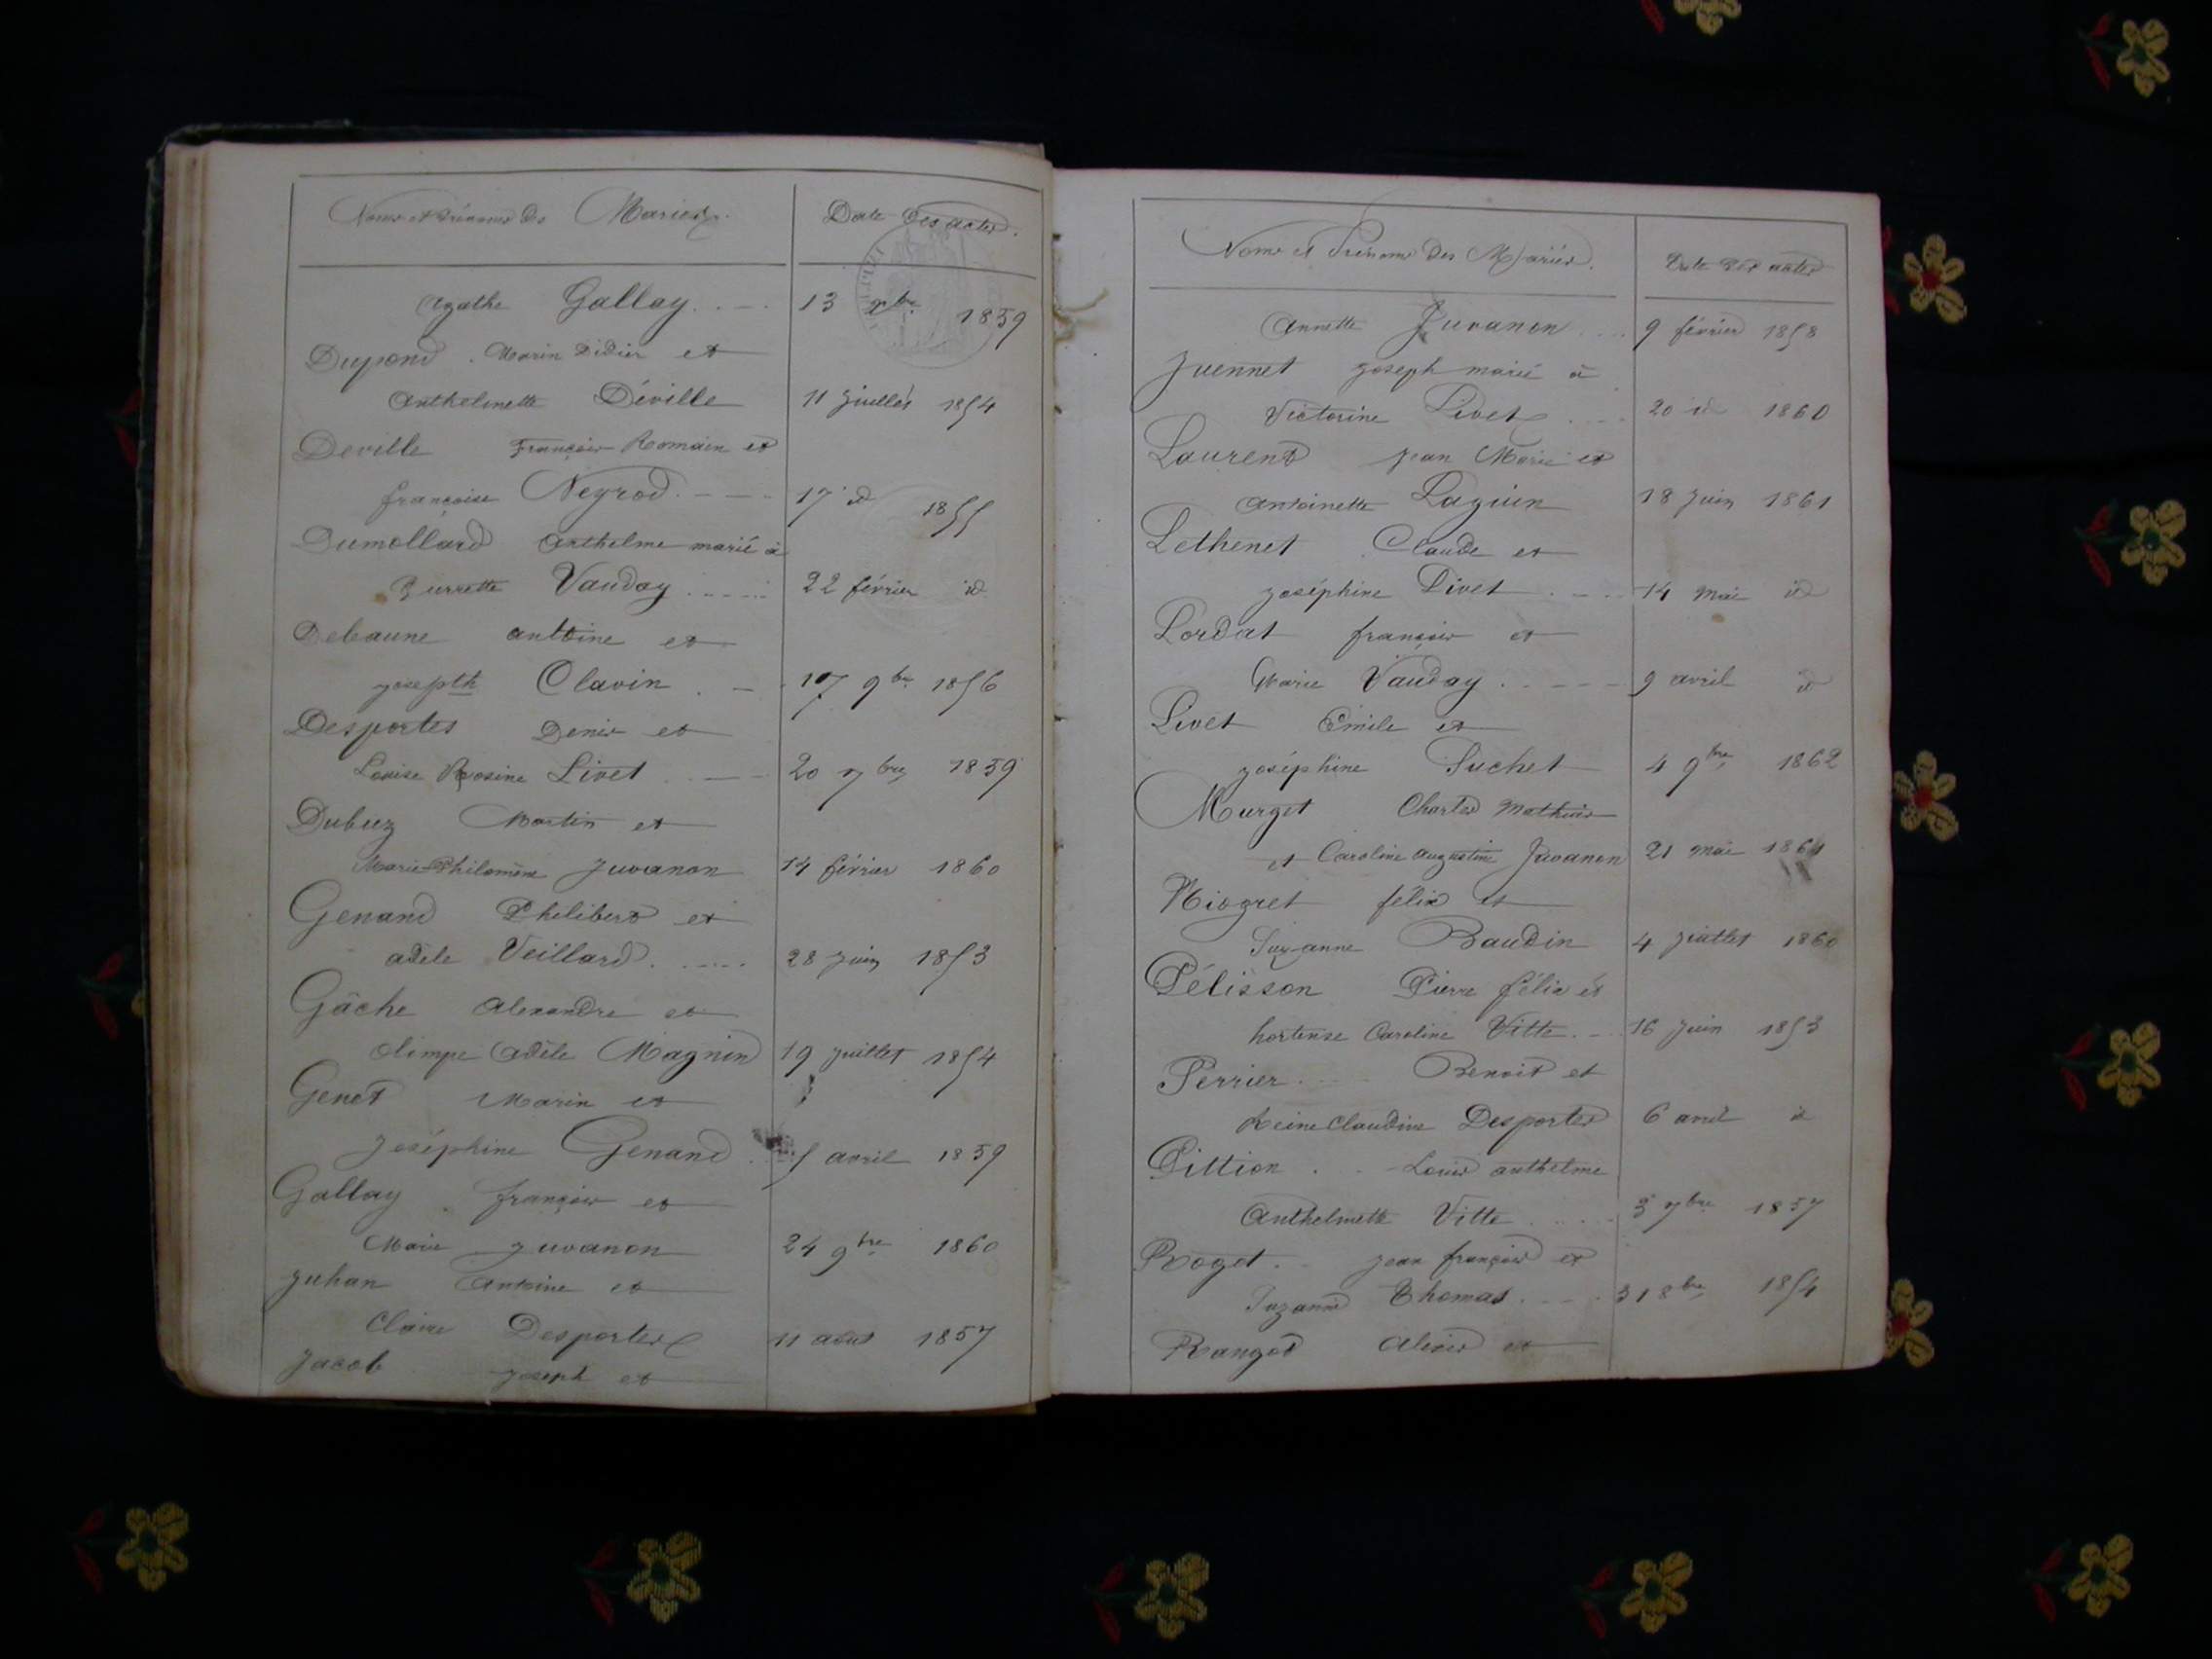 Noms et Prénoms des Mariés.
Date des actes.
Agathe Gallay
13 xbre 1859
Dupond Marin Didier et
Anthelmette Déville
11 juillet 1854
Deville François Romain et
françoise Neyrod
17 id 1855
Dumollard Anthelme marié à
Pierrette Vauday
22 février id
Debaune antoine et
josepth Clavin
17 9bre 1856
Desportes Denis et
Louise Rosine Livet
20 7bre 1859
Dubuz Martin et
Marie-Philomène Juvanon
14 février 1860
Genand Philibert et
adèle Veillard
28 juin 1853
Gâche Alexandre et
Olimpe Adèle Magnin
19 juillet 1854
Genet Marin et
Joséphine Genand
5 avril 1859
Gallay françois et
Marie Juvanon
24 9bre 1860
Juhan Antoine et
Claire Desportes
11 aout 1857
Jacob joseph et
Noms et Prénoms des Mariés.
Date des actes
Annette Juvanon
9 février 1858
Juennet joseph marié à
Victorine Livet
20 id 1860
Laurent Jean Marie et
Antoinette Laguin
18 Juin 1861
Lethenet Claude et
joséphine Livet
14 Mai id
Lordat françois et
Marie Vauday
9 avril id
Livet Emile et
joséphine Suchet
4 9bre 1862
Murget Charles Mathieu
et Caroline Augustine Juvanon
21 mai 1861
Niogret félix et
Suzanne Baudin
4 juillet 1860
Pélisson Pierre félix et
hortense Caroline Vitte
16 Juin 1853
Perrier Benoit et
Reine Claudine Desportes
6 avril id
Pittion Louis anthelme
Anthelmette Vitte
3 7bre 1857
Roget jean françois et
Suzanne Thomas
31 8bre 1854
Rangod Alexis et